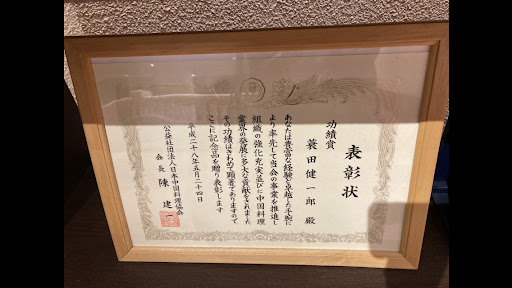 表彰状
功績賞
蓑田健一郎 殿
あなたは豊富な経験と卓越した手腕に
より率先して当会の事業を推進し
組織の強化充実並びに中国料理
業界の発展に多大な貢献をされました
その功績はきわめて顕著でありますので
ここに記念品を贈り表彰します
平成二十八年五月二十四日
公益社団法人日本中国料理協会
会長 陳 建一